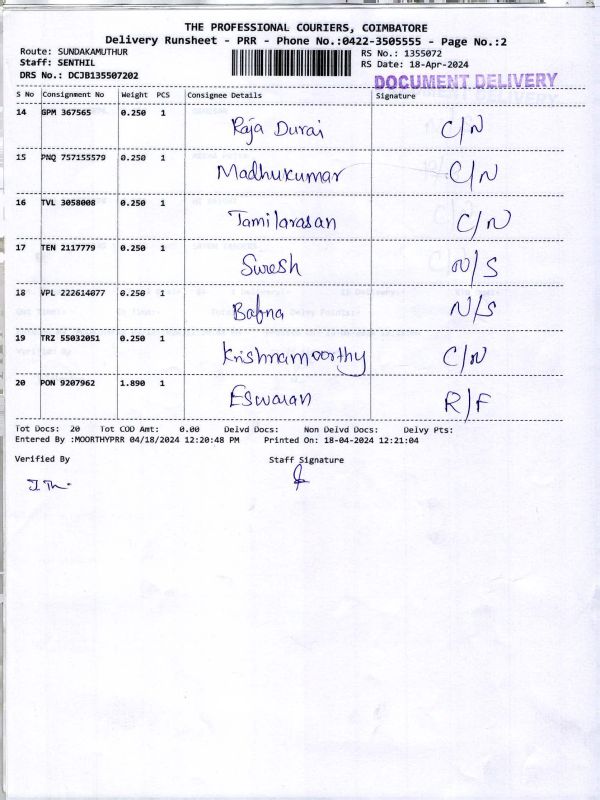 THE PROFESSIONAL COURIERS, COIMBATORE
Delivery Runsheet - PRR - Phone No.:0422-3505555 - Page No.:2
Route: SUNDAKAMUTHUR RS No.: 1355072
Staff: SENTHIL RS Date: 18-Apr-2024
DRS No.: DCJB135507202 DOCUMENT DELIVERY
S No Consignment No Weight PCS Consignee Details Signature
14 GPM 367565 0.250 1 Raja Durai C/N
15 PNQ 757155579 0.250 1 Madhukumar C/N
16 TVL 3058008 0.250 1 Tamilarasan C/N
17 TEN 2117779 0.250 1 Suresh N/S
18 VPL 222614077 0.250 1 Bafna N/S
19 TRZ 55032051 0.250 1 Krishnamoorthy C/N
20 PON 9207962 1.890 1 Eswaran R/F
Tot Docs: 20 Tot COD Amt: 0.00 Delvd Docs: Non Delvd Docs: Delvy Pts:
Entered By :MOORTHYPRR 04/18/2024 12:20:48 PM Printed On: 18-04-2024 12:21:04
Verified By Staff Signature